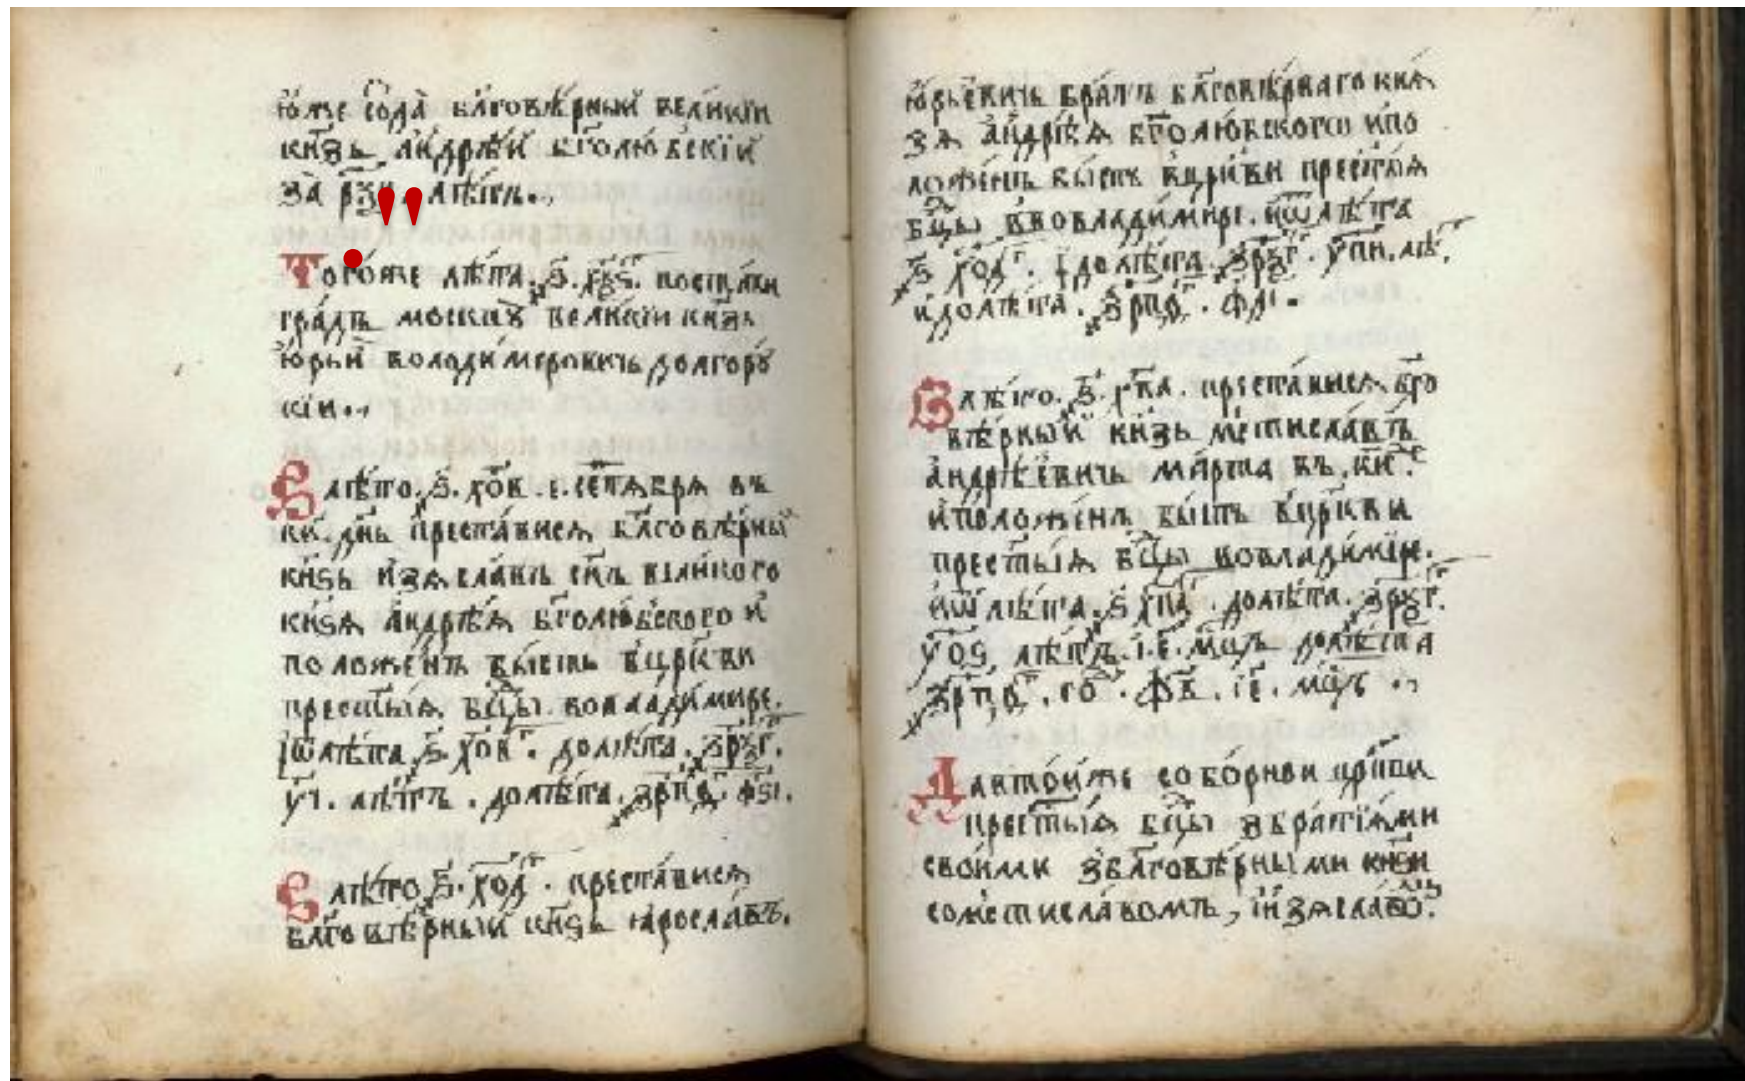 ю́же созда̀ бл҃гове́рный вели́кїи
кн҃зь андрѣ́й бг҃олю́бскїи
за̀ лѣ́тъ.
Того́же лѣ́та. ѕ҃. х҃ѯѕ. поста́ви
гра́дъ москву̀ вели́кїи кн҃зь
ю́рьи володи́меровичь долгорꙋ́
кїи.
В лѣ́то. ѕ҃. х҃ов. септя́бря въ
ки. дн҃ь преста́вися бл҃говѣ́рны
кн҃ѕь изясла́въ сн҃ъ вели́кого
кн҃ѕя андрѣ́я бг҃олю́бского и
поло́женъ бы́сть в цр҃кви
прест҃ы́я бц҃ы. во влади́мире.
ѿ лѣ́та ѕ҃ х҃ов. до лѣ́та.
у҃і. лѣ́тъ. до лѣ́та.
В лѣ́то ѕ҃. х҃од. преста́вися
бл҃говѣ́рный кн҃ѕь яросла́въ.
ю́рьевичь бра́тъ бл҃говѣ́рнаго кня
зя андрѣ́я бг҃олю́бскогѡ и по
ло́женъ бы́сть в цр҃кви прест҃ы́я
бц҃ы в во влади́мире. и ѿ лѣ́та
ѕ҃ х҃од. до лѣ́та. у҃пи. лѣ.
и до лѣ́та. ф҃лі.
В лѣ́то. ѕ҃. х҃па. преста́вися бл҃го
вѣ́рный кн҃зь мстисла́въ
андрѣ́евичь ма́рта въ. ки.
и поло́женъ бы́сть в цр҃кви
прест҃ы́я бц҃ы во влади́мире.
и ѿ лѣ́та. ѕ҃ до лѣ́та.
у҃оѕ лѣ́тъ. і. е. мц҃ъ до лѣ́та
ф҃в. мц҃ъ
Да в то́йже собо́рной цр҃кви
прест҃ы́я бц҃ы з бра́тїями
свои́ми з бл҃говѣ́рными кн҃ѕи
со мстисла́вомъ, и изясла́во.